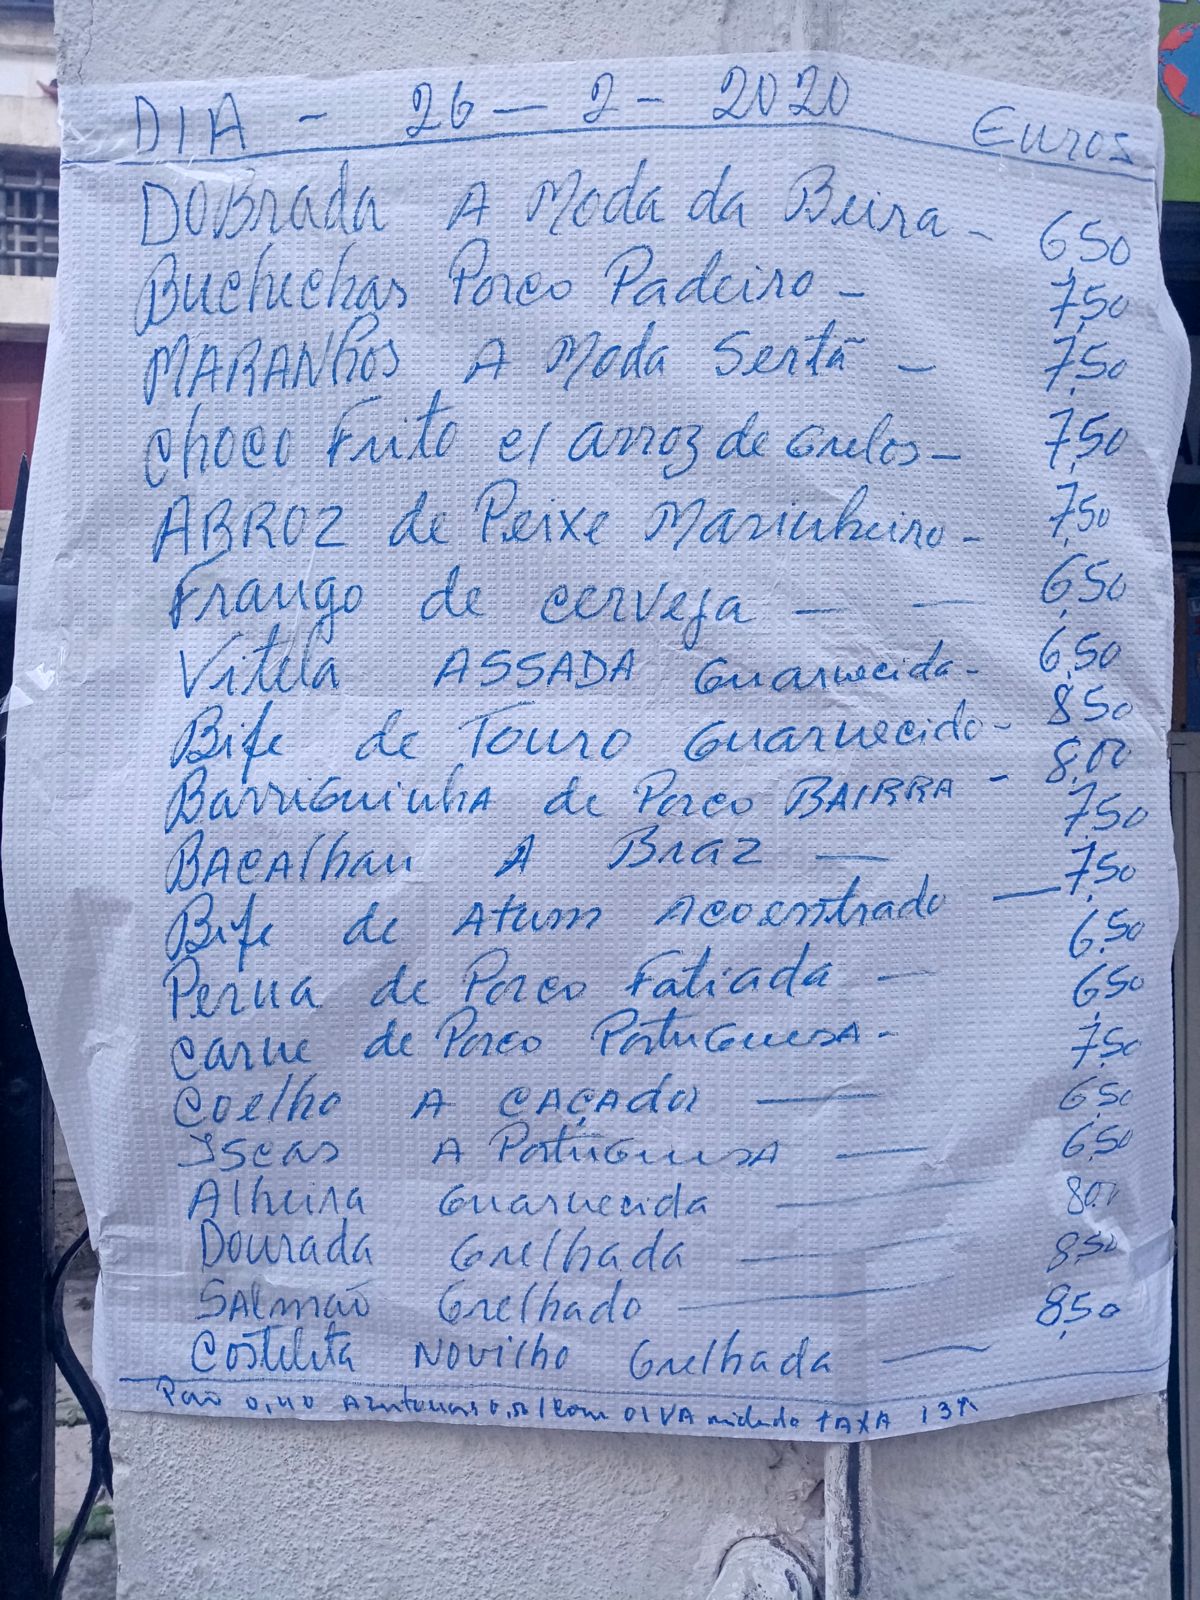 DIA - 26 - 2 - 2020 Euros
DOBrada A Moda da Beira - 6,50
Buchechas Porco Padeiro - 7,50
MARANhos A Moda Sertã - 7,50
choco Frito c/ arroz de Grelos - 7,50
ARROZ de Peixe Marinheiro - 7,50
Frango de cerveja — — 6,50
Vitela ASSADA Guarnecida - 6,50
Bife de Touro Guarnecido - 8,50
BarriGuinhA de Porco BAIRRA - 8,00
BACAlhau A Braz — 7,50
Bife de Atum Acoentrado — 7,50
Perna de Porco Fatiada — 6,50
carne de Porco PortuGuesA - 6,50
Coelho A CAÇAdor — 7,50
Iscas A PortuGuesA — 6,50
Alheira Guarnecida — 6,50
Dourada Grelhada — 8,00
SAlmão Grelhado — 8,50
Costeleta Novilho Grelhada — 8,50
Pão 0,40 Azeitonas 0,50 / com O IVA incluido tAXA 13%